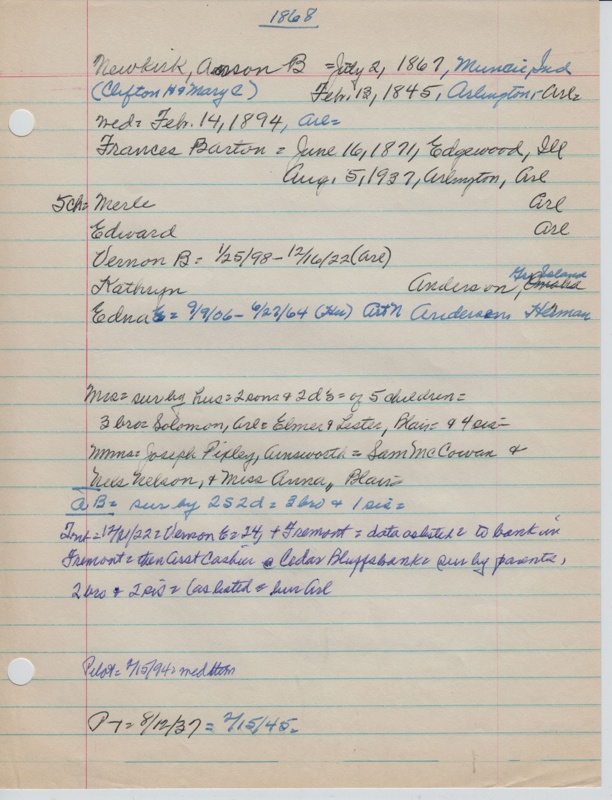 1868
Newkirk, Anson B = July 2, 1867, Muncie, Ind
(Clifton H & Mary C) Feb. 13, 1945, Arlington, Arl=
med= Feb. 14, 1894, Arl=
Frances Barton = June 16, 1871, Edgewood, Ill
Aug. 5, 1937, Arlington, Arl
5ch= Merle Arl
Edward Arl
Vernon B= 1/25/98 - 12/16/22 (Arl)
Gr Island
Kathryn Anderson, Omaha
Edna E= 9/9/06 - 6/27/64 (Her) Art N Anderson Herman
Mrs= sur by hus= 2 sons & 2 d's= of 5 children=
3 bro= Solomon, Arl= Elmer & Lester, Blair= & 4 sis=
Mmes= Joseph Pixley, Ainsworth= Sam McCowan &
Nels Nelson, & Miss Anna, Blair=
A B= sur by 2S 2d= 3 bro & 1 sis=
12/21/22= Vernon E= 24, + Fremont= data as listed= to bank in
Fremont= then asst Cashier @ Cedar Bluffs bank= sur by parents,
2 bro & 2 sis= (as listed= bur Arl
Pilot= 2/15/94= med item
P T= 8/12/37= 2/15/45=